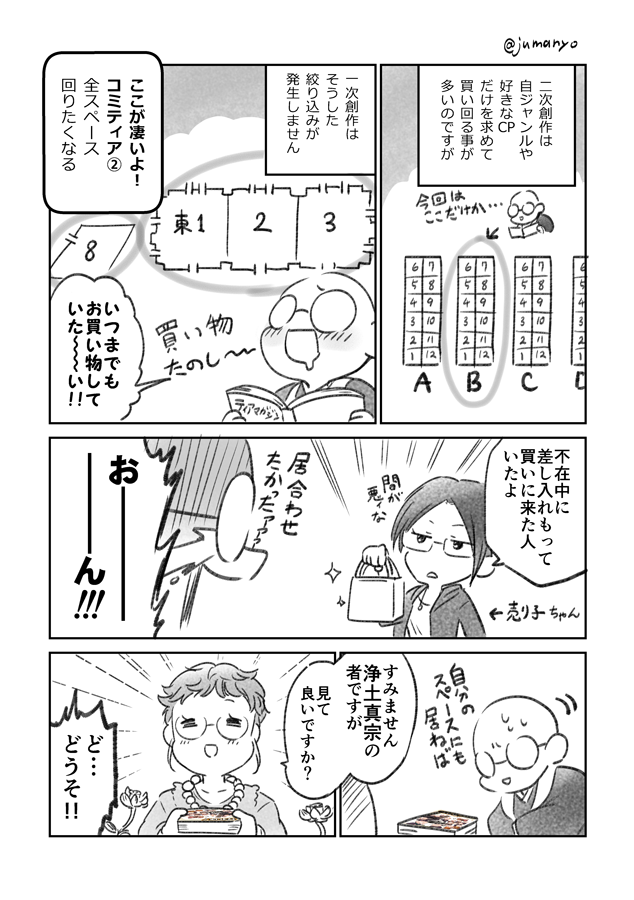 @jumanyo
二次創作は
自ジャンルや
好きなCP
だけを求めて
買い回る事が
多いのですが
今回は
ここだけか…
6 7
5 8
4 9
3 10
2 11
1 12
A
6 7
5 8
4 9
3 10
2 11
1 12
B
6 7
5 8
4 9
3 10
2 11
1 12
C
6
5
4
3
2
1
D
一次創作は
そうした
絞り込みが
発生しません
ここが凄いよ!
コミティア②
全スペース
回りたくなる
東1 2 3
8
買い物
たのし〜〜
ティアマガジン
いつまでも
お買い物して
いた〜〜〜い!!
不在中に
差し入れもって
買いに来た人
いたよ
←売り子ちゃん
間が
悪ィな
居合わせ
たかったァァァ
お――――ん!!!
自分の
スペースにも
居ねば
すみません
浄土真宗の
者ですが
見て
良いですか?
ど…
どうそ!!